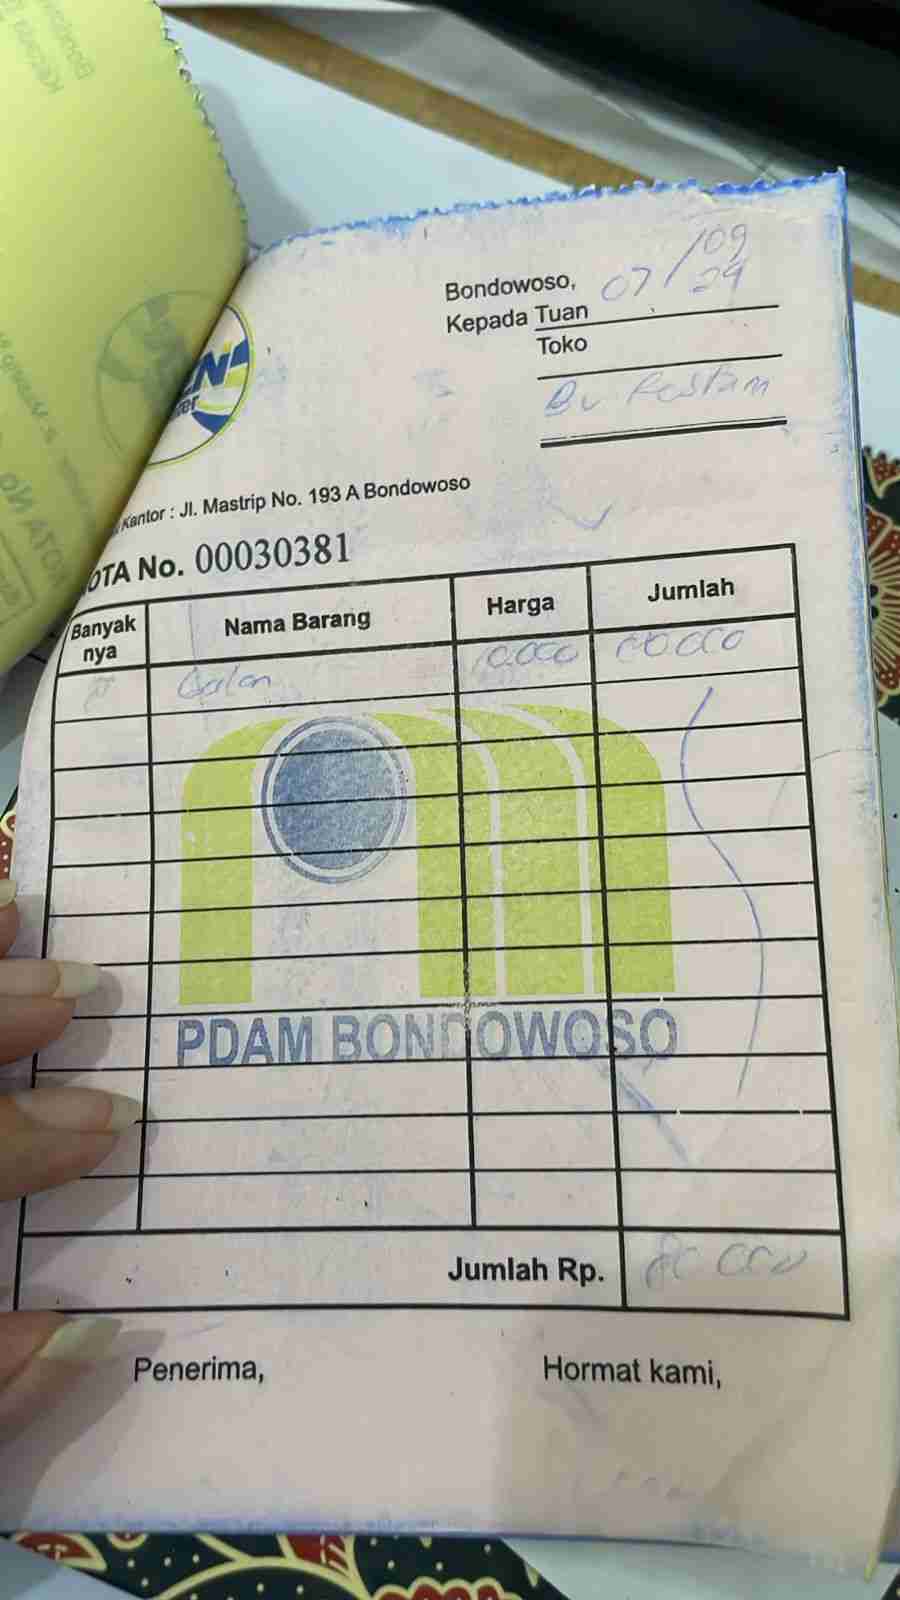 Bondowoso, 07/09
24
Kepada Tuan
Toko
Bu
Kantor : Jl. Mastrip No. 193 A Bondowoso
OTA No. 00030381
Banyak nya Nama Barang Harga Jumlah
Galon 10.000
PDAM BONDOWOSO
Jumlah Rp.
Penerima, Hormat kami,